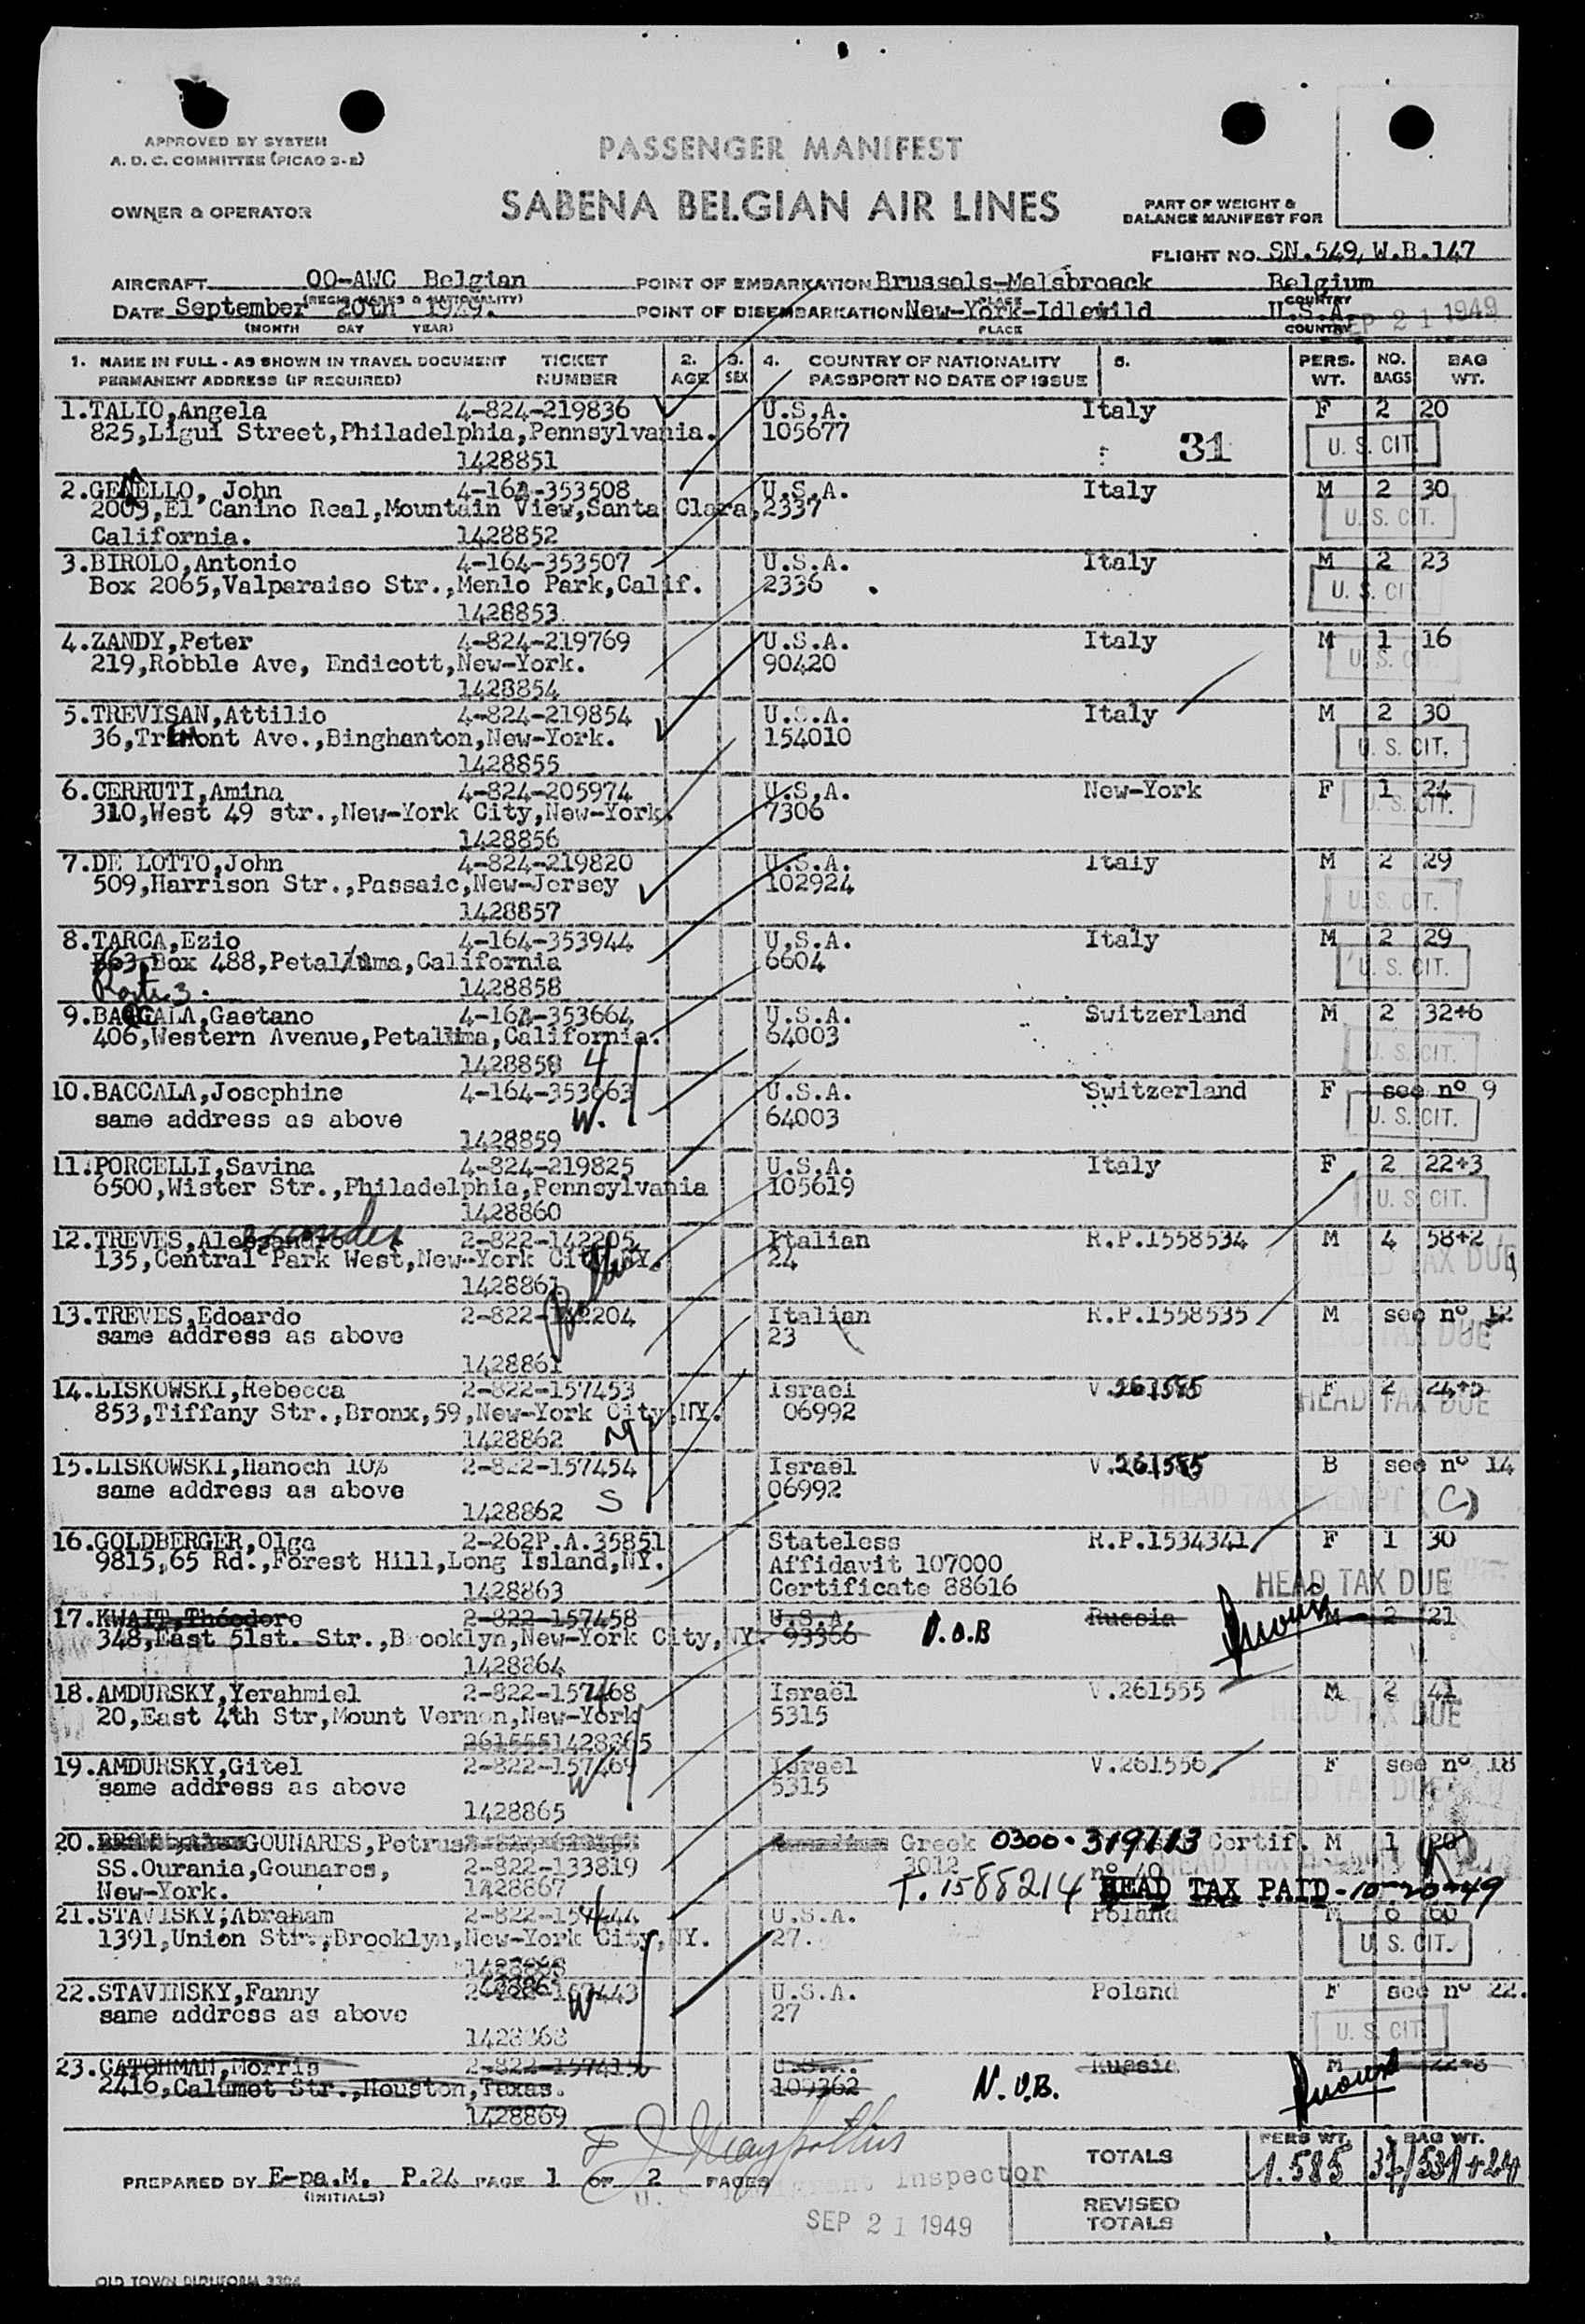 APPROVED BY SYSTEM
A. D. C. COMMITTEE (PICAO 2-E)
OWNER & OPERATOR
PASSENGER MANIFEST
SABENA BELGIAN AIR LINES
PART OF WEIGHT &
BALANCE MANIFEST FOR
FLIGHT NO. SN.549, W.B.147
AIRCRAFT OO-AWC Belgian POINT OF EMBARKATION Brussels-Melsbroeck Belgium
(REGIS. MARKS & NATIONALITY) PLACE COUNTRY
DATE September 20th 1949. POINT OF DISEMBARKATION New-York-Idlewild U.S.A.
(MONTH DAY YEAR) PLACE COUNTRY
SEP 21 1949
1. NAME IN FULL - AS SHOWN IN TRAVEL DOCUMENT TICKET 2. 3. 4. COUNTRY OF NATIONALITY 5. PERS. NO. BAG
PERMANENT ADDRESS (IF REQUIRED) NUMBER AGE SEX PASSPORT NO DATE OF ISSUE WT. BAGS WT.
1.TALIO,Angela 4-824-219836 U.S.A. Italy F 2 20
825,Ligui Street,Philadelphia,Pennsylvania. 105677 31 U. S. CIT.
1428851
2.GENELLO, John 4-164-353508 U.S.A. Italy M 2 30
2009,El Canino Real,Mountain View,Santa Clara, 2337 U. S. CIT.
California. 1428852
3.BIROLO,Antonio 4-164-353507 U.S.A. Italy M 2 23
Box 2065,Valparaiso Str.,Menlo Park,Calif. 2336 U. S. CIT
1428853
4.ZANDY,Peter 4-824-219769 U.S.A. Italy M 1 16
219,Robble Ave, Endicott,New-York. 90420 U. S. C
1428854
5.TREVISAN,Attilio 4-824-219854 U.S.A. Italy M 2 30
36,Tremont Ave.,Binghanton,New-York. 154010 U. S. CIT.
1428855
6.CERRUTI,Amina 4-824-205974 U.S.A. New-York F 1 24
310,West 49 str.,New-York City,New-York. 7306 U. S. CIT.
1428856
7.DE LOTTO,John 4-824-219820 U.S.A. Italy M 2 29
509,Harrison Str.,Passaic,New-Jersey 102924 U. S. CIT.
1428857
8.TARCA,Ezio 4-164-353944 U.S.A. Italy M 2 29
Box 488,Petaluma,California 6604 U. S. CIT.
3. 1428858
9.BACCALA,Gaetano 4-164-353664 U.S.A. Switzerland M 2 32+6
406,Western Avenue,Petaluma,California. 64003 U. S. CIT.
1428859 4
10.BACCALA,Josephine 4-164-353663 U.S.A. Switzerland F see nº 9
same address as above W. 64003 U. S. CIT.
1428859
11.PORCELLI,Savina 4-824-219825 U.S.A. Italy F 2 22+3
6500,Wister Str.,Philadelphia,Pennsylvania 105619 U. S. CIT.
1428860
12.TREVES, 2-822-142205 Italian R.P.1558534 M 4 58+2
135,Central Park West,New-York City,NY. 24 TAX DUE
1428861
13.TREVES,Edoardo 2-822-142204 Italian R.P.1558535 M see nº 12
same address as above 23 DUE
1428861
14.LISKOWSKI,Rebecca 2-822-157453 Israel V.261585 F 2 24+5
853,Tiffany Str.,Bronx,59,New-York City,NY. 06992 HEAD TAX DUE
1428862
15.LISKOWSKI,Hanoch 10% 2-822-157454 Israel V.261585 B see nº 14
same address as above 06992 HEAD TAX EXEMPT (C)
1428862 S
16.GOLDBERGER,Olga 2-262P.A.35851 Stateless R.P.1534341 F 1 30
9815,65 Rd.,Forest Hill,Long Island,NY. Affidavit 107000
1428863 Certificate 88616 HEAD TAX DUE
17.KWAIT,Théodore 2-822-157458 U.S.A. Russia M 2 21
348,East 51st. Str.,Brooklyn,New-York City,NY. 93366
1428864
18.AMDURSKY,Yerahmiel 2-822-157468 Israël V.261555 M 2 41
20,East 4th Str,Mount Vernon,New-York 5315 TAX DUE
2615551428865
19.AMDURSKY,Gitel 2-822-157469 Israel V.261556 F see nº 18
same address as above W 5315 HEAD TAX DUE
1428865
20. GOUNARES,Petrus Greek 0300-319113 Certif. M 1 20
SS.Ourania,Gounares, 2-822-133819 3012 nº 40
New-York. 1428867 T. 1588214 HEAD TAX PAID-10-20-49
21.STAVISKY,Abraham U.S.A. Poland M 6 60
1391,Union Str.,Brooklyn,New-York City,NY. 27. U. S. CIT.
1428868
22.STAVINSKY,Fanny U.S.A. Poland F see nº 22.
same address as above W 27 U. S. CIT
1428868
23.GATOHMAN,Morris U.S.A. Russia M 22+8
2416,Calumet Str.,Houston,Texas. 109362 N.O.B.
1428869
TOTALS PERS WT. 1.585 BAG WT.
PREPARED BY E-pa.M. P.24 PAGE 1 OF 2 PAGES
(INITIALS)
Immigrant Inspector
SEP 21 1949
REVISED
TOTALS
OLD TOWN DUPLIFORM